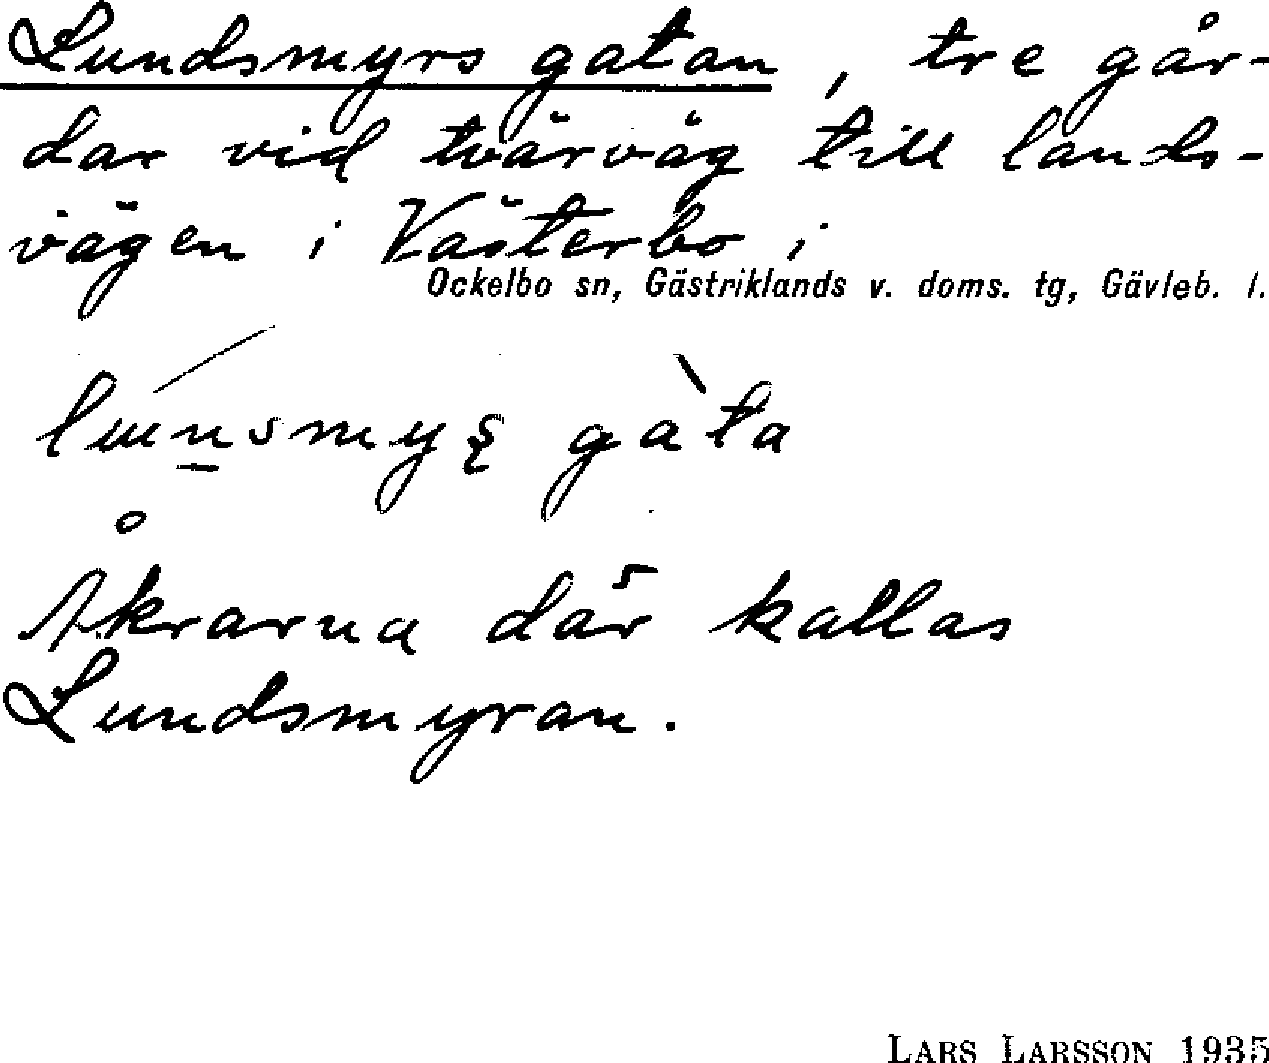 Lundsmyrs gatan, tre går-
dar vid tvärväg till lands-
vägen i Västerbo i
Ockelbo sn, Gästriklands v. doms. tg, Gävleb. l.
gata
Åkrarna där kallas
Lundsmyran.
LARS LARSSON 1935